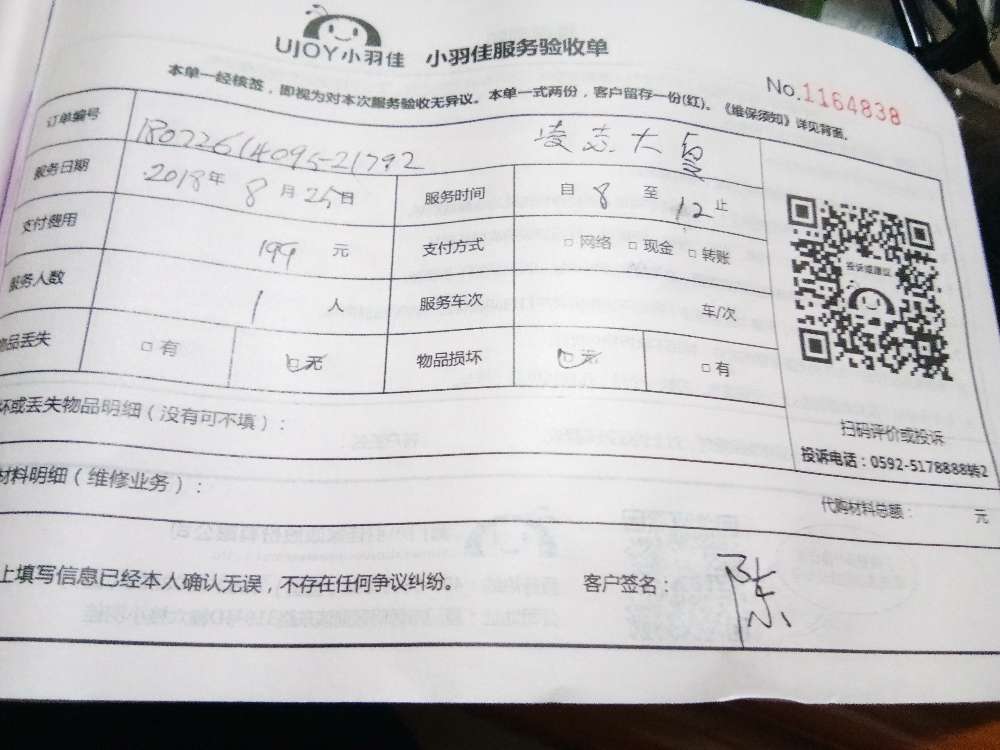 UJOY小羽佳 小羽佳服务验收单
No.1164838
本单一经核签，即视为对本次服务验收无异议。本单一式两份，客户留存一份(红)。《维保须知》详见背面。
订单编号 18072614095-21792
服务日期 2018年8月25日 服务时间 自8至12止
支付费用 199元 支付方式 □网络 □现金 □转账
服务人数 1人 服务车次 车/次
物品丢失 □有 □无 物品损坏 □无 □有
投诉或建议
坏或丢失物品明细（没有可不填）：
扫码评价或投诉
投诉电话：0592-5178888转2
材料明细（维修业务）：
代购材料总额： 元
上填写信息已经本人确认无误，不存在任何争议纠纷。 客户签名：陈